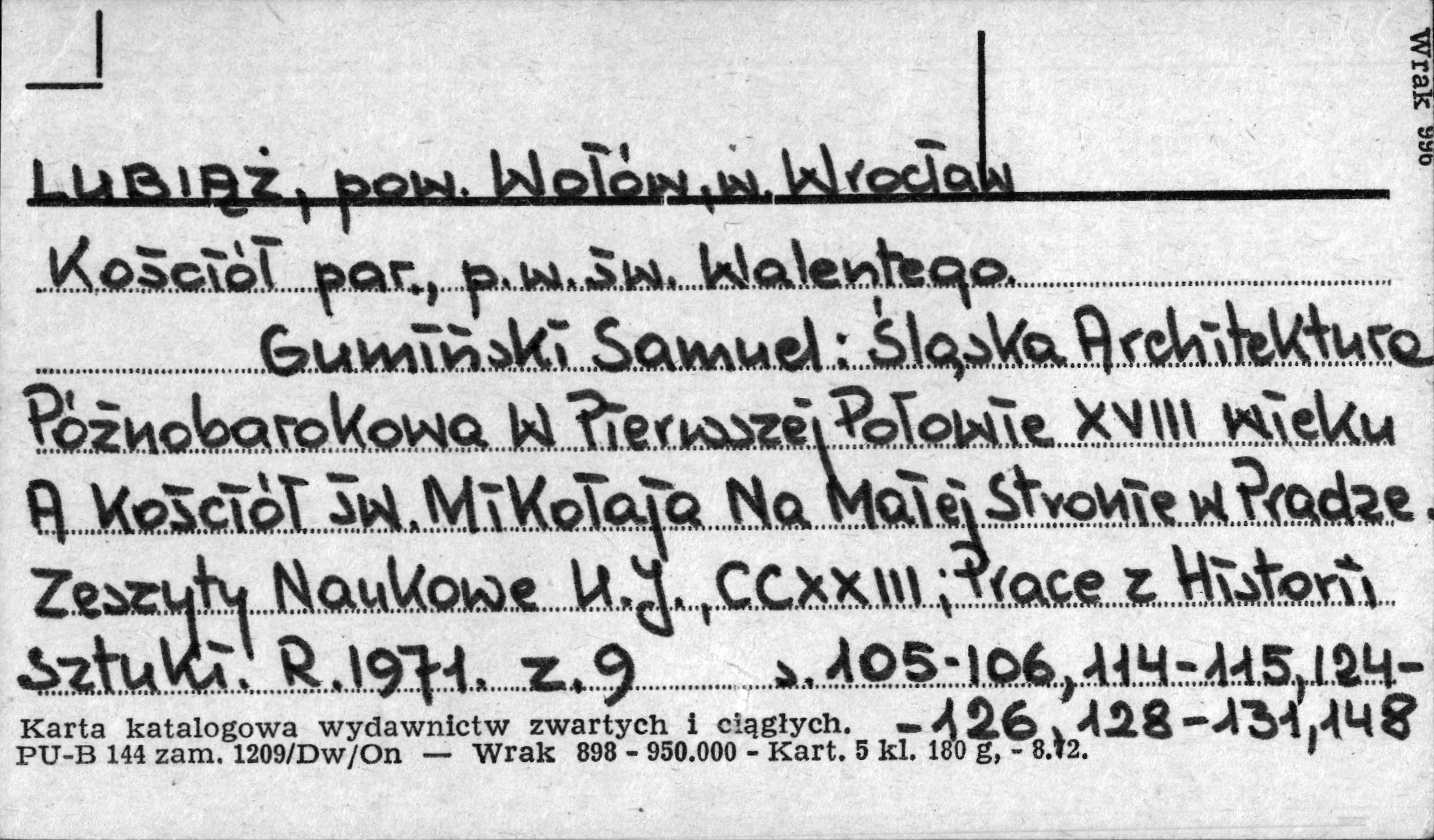 Wrak 996
LUBIĄŻ, pow. Wołów, w. Wrocław
Kościół par., p.w. św. Walentego.
Gumiński Samuel: Śląska Architektura
Późnobarokowa W Pierwszej Połowie XVIII wieku
A Kościół św. Mikołaja Na Małej Stronie w Pradze.
Zeszyty Naukowe U.J., CCXXIII; Prace z Historii
Sztuki. R. 1971. z. 9 s. 105-106, 114-115, 124-
-126, 128-131, 148
Karta katalogowa wydawnictw zwartych i ciągłych.
PU-B 144 zam. 1209/Dw/On — Wrak 898 - 950.000 - Kart. 5 kl. 180 g, - 8.72.